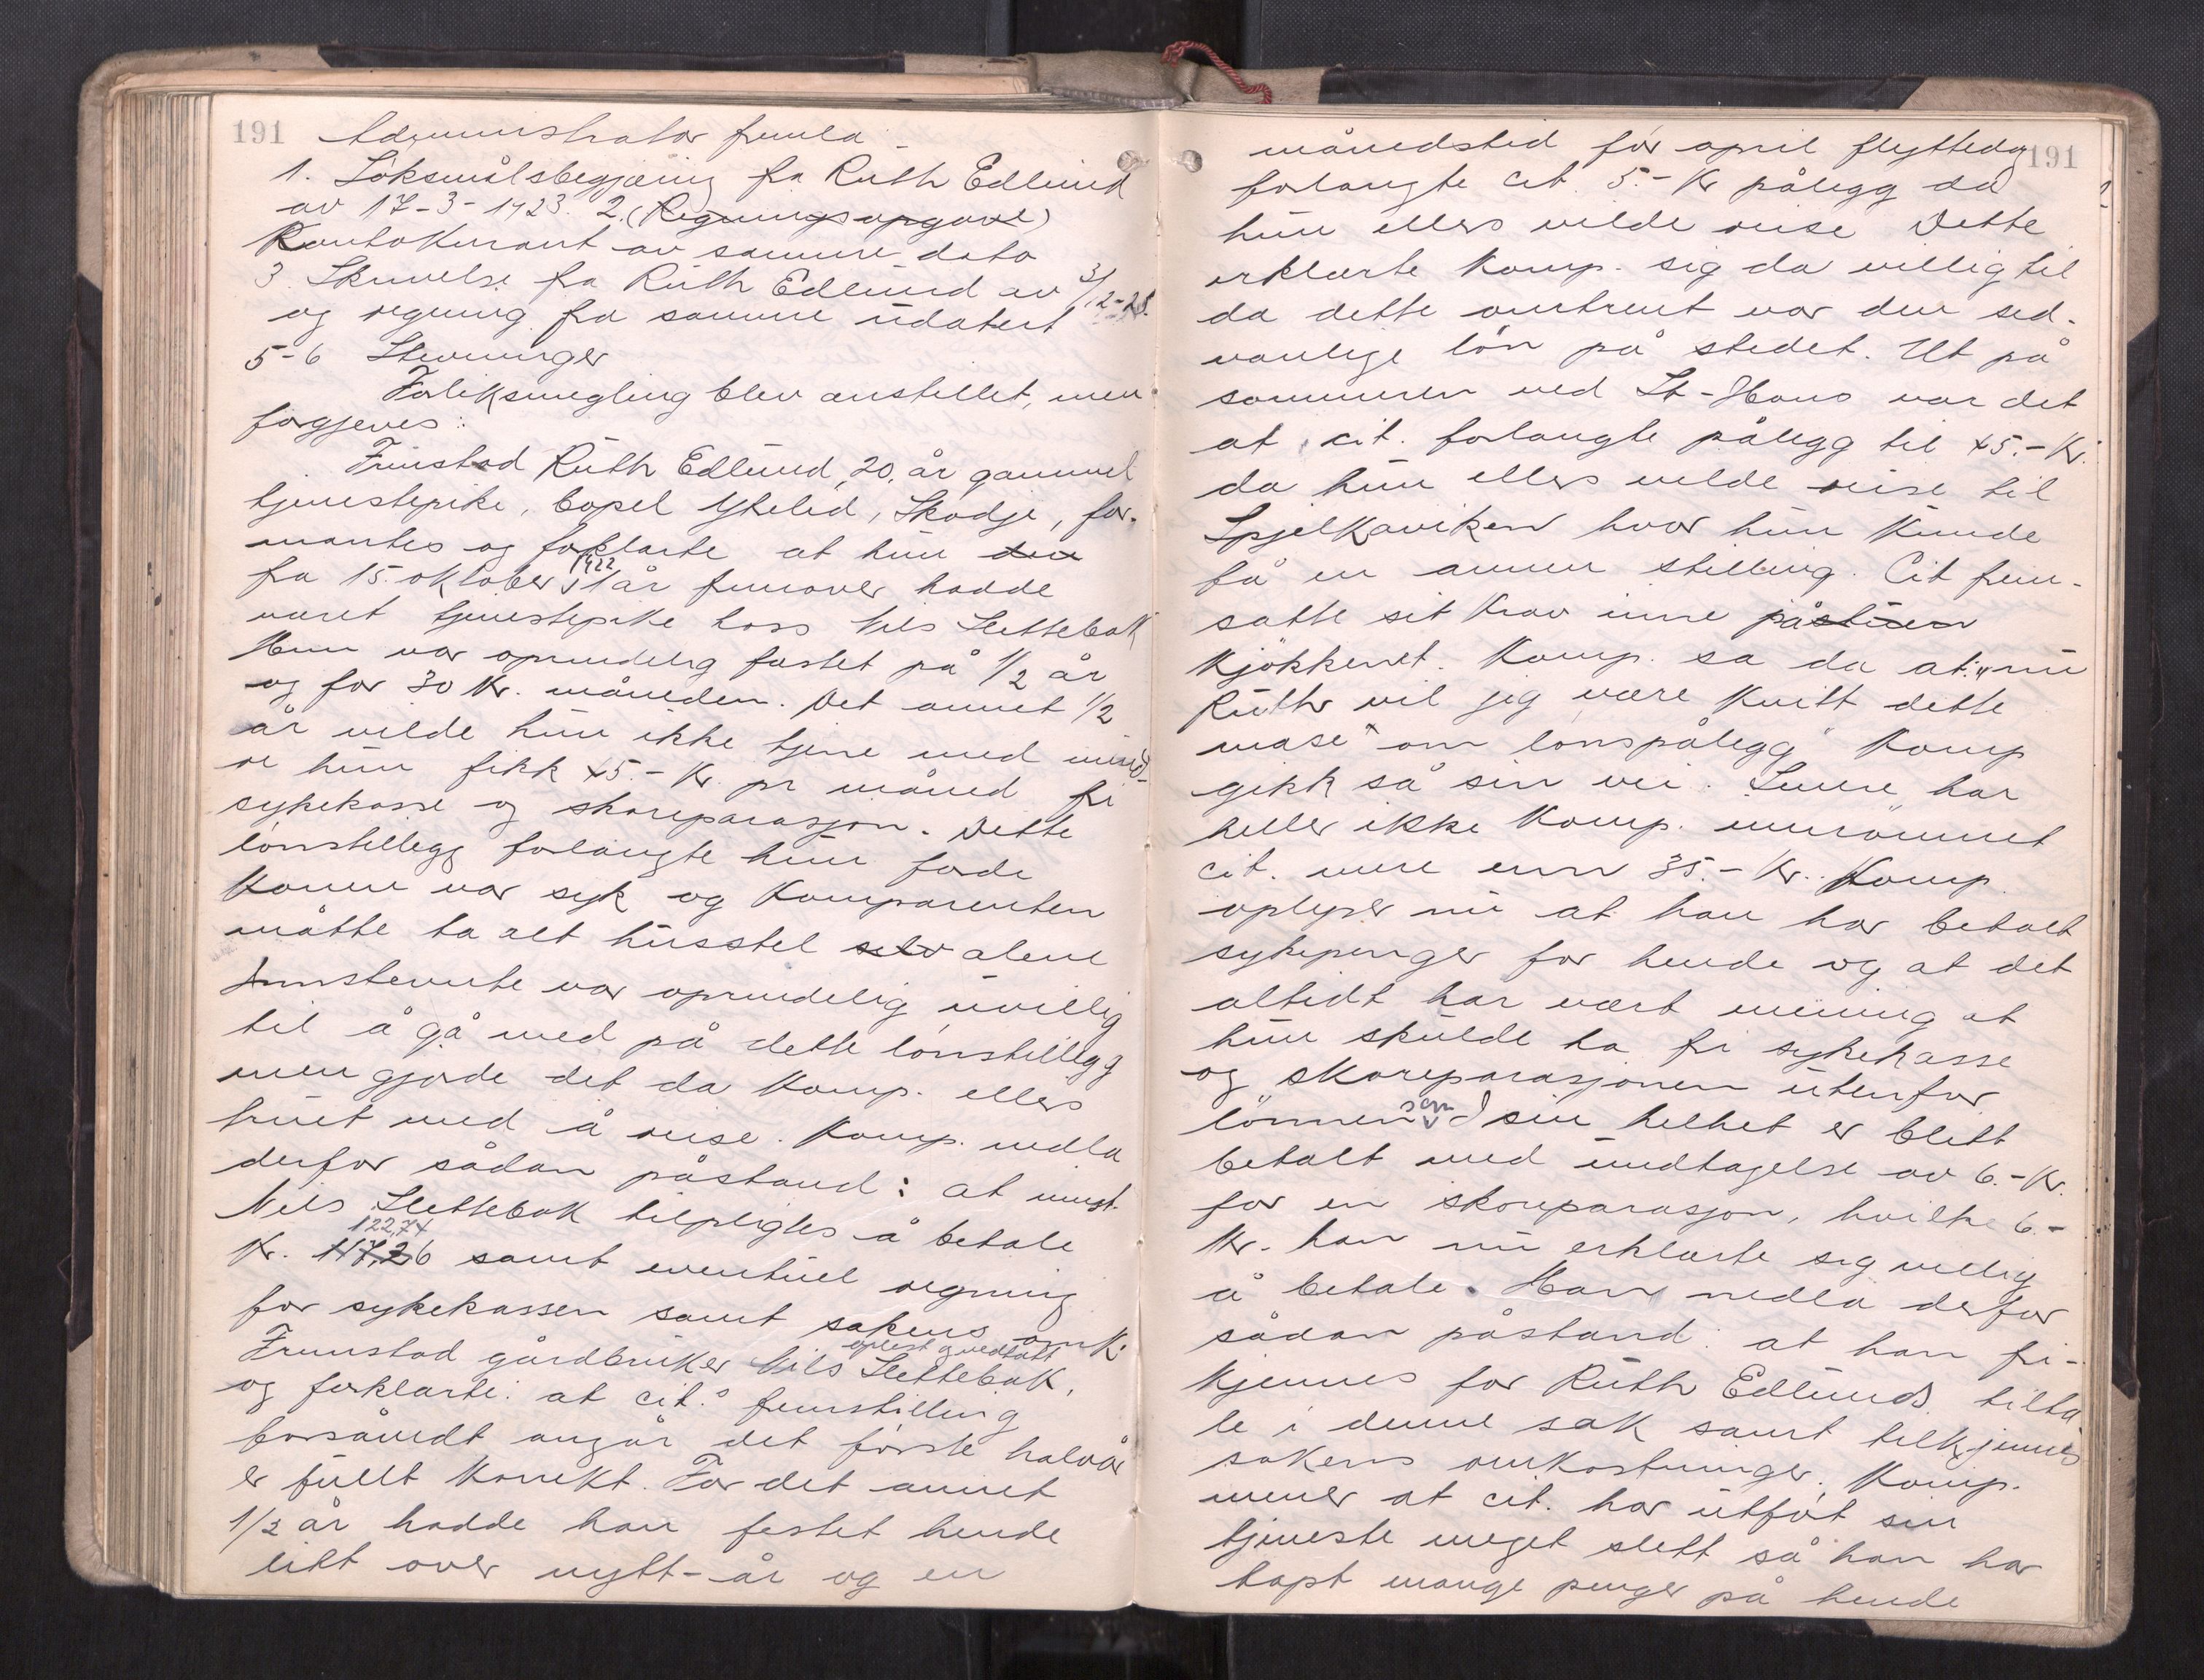 191 Administrator fremla
1. Söksmålsbegjæring fra Ruth Edlund
av 17-3-1923. 2. (Regningsopgave)
Kontokurant av samme dato
3. Skrivelse fra Ruth Edlund av 3/12-23.
og regning fra samme udatert
5-6 Stevninger
Forliksmegling blev anstillet, men
forgjeves:
Fremstod Ruth Edlund, 20, år gammel
tjenestepike, bopel Ytreled, Skodje, for-
mantes og forklarte at hun den
fra 15. oktober 1922 1 år fremover hadde
været tjenestepike hoss Nils Slettebak
Hun var oprindelig festet på 1/2 år
og for 30 Kr. måneden. Det annet 1/2
år vilde hun ikke tjene med mind-
re hun fikk 45.- Kr. pr måned fri
sykekasse og skoreparasjon. Dette
lönstillegg forlangte hun fordi
konen var syk og Komparenten
måtte ta alt husstel selv alene
Innstevnte var oprindelig uvillig
til å gå med på dette lönstillegg
men gjorde det da Komp. ellers
truet med å reise. Komp. nedla
derfor sådan påstand: at innst.
Nils Slettebak tilpligtes å betale
122,74
Kr. 117,26 samt eventuel regning
for sykekassen samt sakens omk.
oplest og vedtatt
Fremstod gårdbruker Nils Slettebak,
og forklarte: at cit.s fremstilling
forsåvidt angår det förste halvår
er fullt korrekt. For det annet
1/2 år hadde han festet hende
litt over nytt-år og en
191
månedstid för april flyttedag
forlangte cit. 5.- Kr pålegg da
hun ellers vilde reise Dette
erklærte Komp. sig da villig til
da dette omtrent var den sed-
vanlige lön på stedet. Ut på
sommeren ved St-Hans var det
at cit. forlangte pålegg til 45.- Kr.
da hun ellers vilde reise til
Spjelkaviken hvor hun kunde
få en annen stilling. Cit frem-
satte sit krav inne på stuen
kjökkenet. Komp. sa da at: "nu
Ruth vil jeg være kvitt dette
mase" om lönspålegg" Komp
gikk så sin vei. Senere har
heller ikke Komp. innrömmet
cit. mere enn 35.- Kr. Komp.
oplyser nu at han har betalt
sykepenger for hende og at det
altidt har vært mening at
hun skulde ha fri sykekasse
og skoreparasjonen utenfor
lönnen som i sin helhet er blitt
betalt med undtagelse av 6.- Kr.
for en skoreparasjon, hvilke 6.-
Kr. han nu erklærte sig villig
å betale. Han nedla derfor
sådan påstand: at han fri-
kjennes for Ruth Edlunds tilta
le i denne sak samt tilkjennes
sakens omkostninger. Komp.
mener at cit. har utfört sin
tjeneste meget slett så han har
tapt mange penger på hende